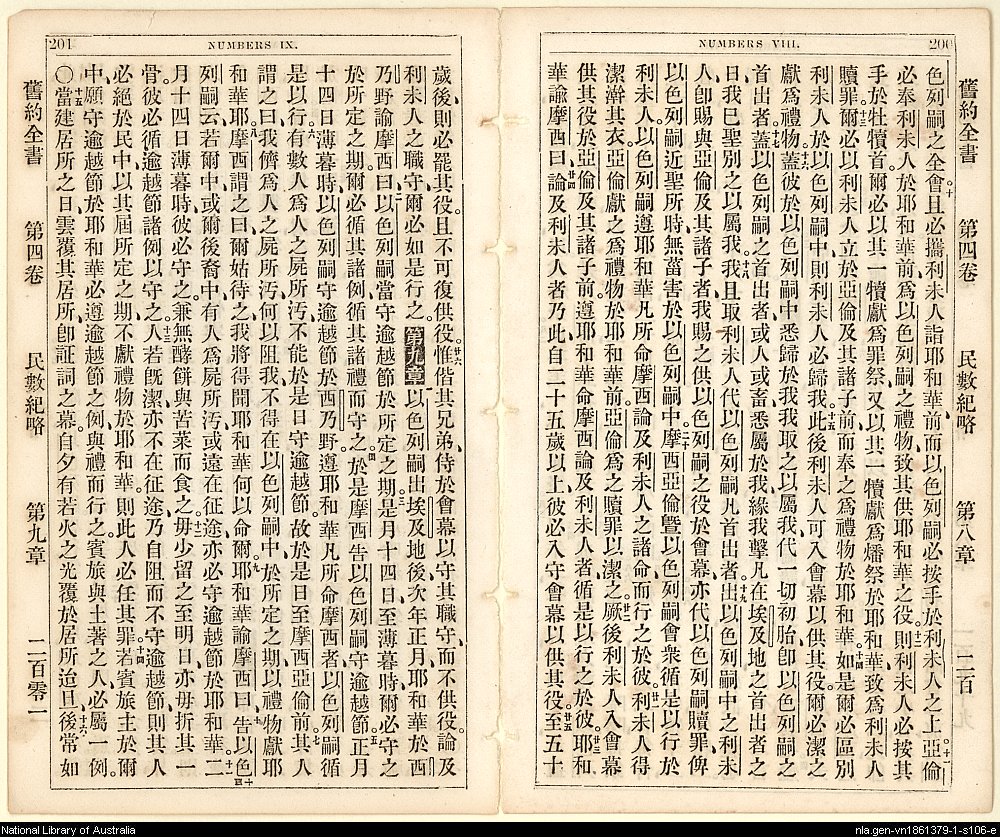 NUMBERS VIII.
200
舊約全書 第四卷 民數紀略 第八章 二百
色列嗣之全會且必攜利未人詣耶和華前而以色列嗣必按手於利未人之上亞倫
必奉利未人於耶和華前爲以色列嗣之禮物致其供耶和華之役則利未人必按其
手於牡犢首爾必以其一犢獻爲罪祭又以其一犢獻爲燔祭於耶和華致爲利未人
贖罪爾必以利未人立於亞倫及其諸子前而奉之爲禮物於耶和華如是爾必區別
利未人於以色列嗣中則利未人必歸我此後利未人可入會幕以供其役爾必潔之
獻爲禮物蓋彼於以色列嗣中悉歸於我我取之以屬我代一切初胎卽以色列嗣之
首出者蓋以色列嗣之首出者或人或畜悉屬於我緣我擊凡在埃及地之首出者之
日我已聖別之以屬我我且取利未人代以色列嗣凡首出者出以色列嗣中之利未
人卽賜與亞倫及其諸子者我賜之供以色列嗣之役於會幕亦代以色列嗣贖罪俾
以色列嗣近聖所時無菑害於以色列嗣中摩西亞倫曁以色列嗣會衆循是以行於
利未人以色列嗣遵耶和華凡所命摩西論及利未人之諸命而行之於彼利未人得
潔澣其衣亞倫獻之爲禮物於耶和華前亞倫爲之贖罪以潔之厥後利未人入會幕
供其役於亞倫及其諸子前遵耶和華命摩西論及利未人者循是以行之於彼耶和
華諭摩西曰論及利未人者乃此自二十五歲以上彼必入守會幕以供其役至五十
NUMBERS IX.
201
歲後則必罷其役且不可復供役惟偕其兄弟侍於會幕以守其職守而不供役論及
利未人之職守爾必如是行之 第九章 以色列嗣出埃及地後次年正月耶和華於西
乃野諭摩西曰以色列嗣當守逾越節於所定之期是月十四日至薄暮時爾必守之
於所定之期爾必循其諸例循其諸禮而守之於是摩西告以色列嗣守逾越節正月
十四日薄暮時以色列嗣守逾越節於西乃野遵耶和華凡所命摩西者以色列嗣循
是以行有數人爲人之屍所汚不能於是日守逾越節故於是日至摩西亞倫前其人
謂之曰我儕爲人之屍所汚何以阻我不得在以色列嗣中於所定之期以禮物獻耶
和華耶摩西謂之曰爾姑待之我將得聞耶和華何以命爾耶和華諭摩西曰告以色
列嗣云若爾中或爾後裔中有人爲屍所汚或遠在征途亦必守逾越節於耶和華二
月十四日薄暮時彼必守之兼無酵餅與苦菜而食之毋少留之至明日亦毋折其一
骨彼必循逾越節諸例以守之人若旣潔亦不在征途乃自阻而不守逾越節則其人
必絕於民中以其屆所定之期不獻禮物於耶和華則此人必任其罪若賓旅主於爾
中願守逾越節於耶和華必遵逾越節之例與禮而行之賓旅與土著之人必屬一例
〇當建居所之日雲覆其居所卽証詞之幕自夕有若火之光覆於居所迨旦後常如
舊約全書 第四卷 民數紀略 第九章 二百零一
National Library of Australia
nla.gen-vn1861379-1-s106-e